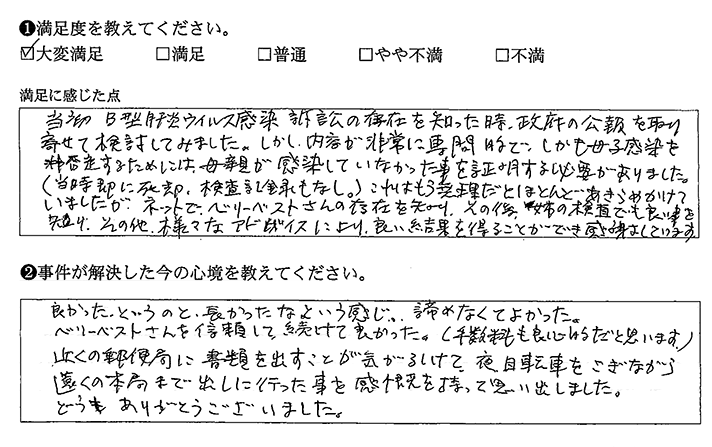 ❶満足度を教えてください。
☑大変満足 □満足 □普通 □やや不満 □不満
満足に感じた点
当初 B型肝炎ウイルス感染 訴訟の存在を知った時、政府の公報を取り
寄せて検討してみました。しかし、内容が非常に専門的で、しかも母子感染を
否定するためには、母親が感染していなかった事を証明する必要がありました。
(当時即に死亡、検査記録もなし。) これはもう無理だとほとんどあきらめかけて
いましたが、ネットで、ベリーベストさんの存在を知り、その後、姉の検査でも良い事を
知り、その他、様々なアドバイスにより、良い結果を得ることができ感謝しています
❷事件が解決した今の心境を教えてください。
良かったというのと、長かったなという感じ。諦めなくてよかった。
ベリーベストさんを信頼して続けて良かった。(手数料も良心的だと思います)
近くの郵便局に書類を出すことが気がひけて、夜自転車をこぎながら
遠くの本局まで出しに行った事を感慨を持って思い出しました。
どうも ありがとうございました。